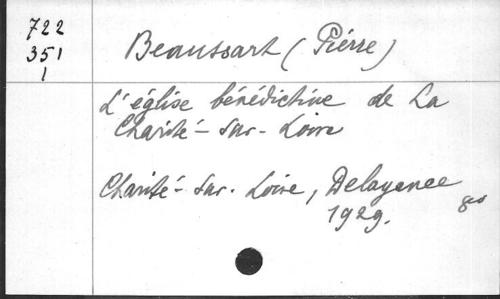 722
351
1
Beaussart (Pierre)
L'église bénédictine de La
Charité-sur-Loire
Charité-sur-Loire, Delayance
1929.